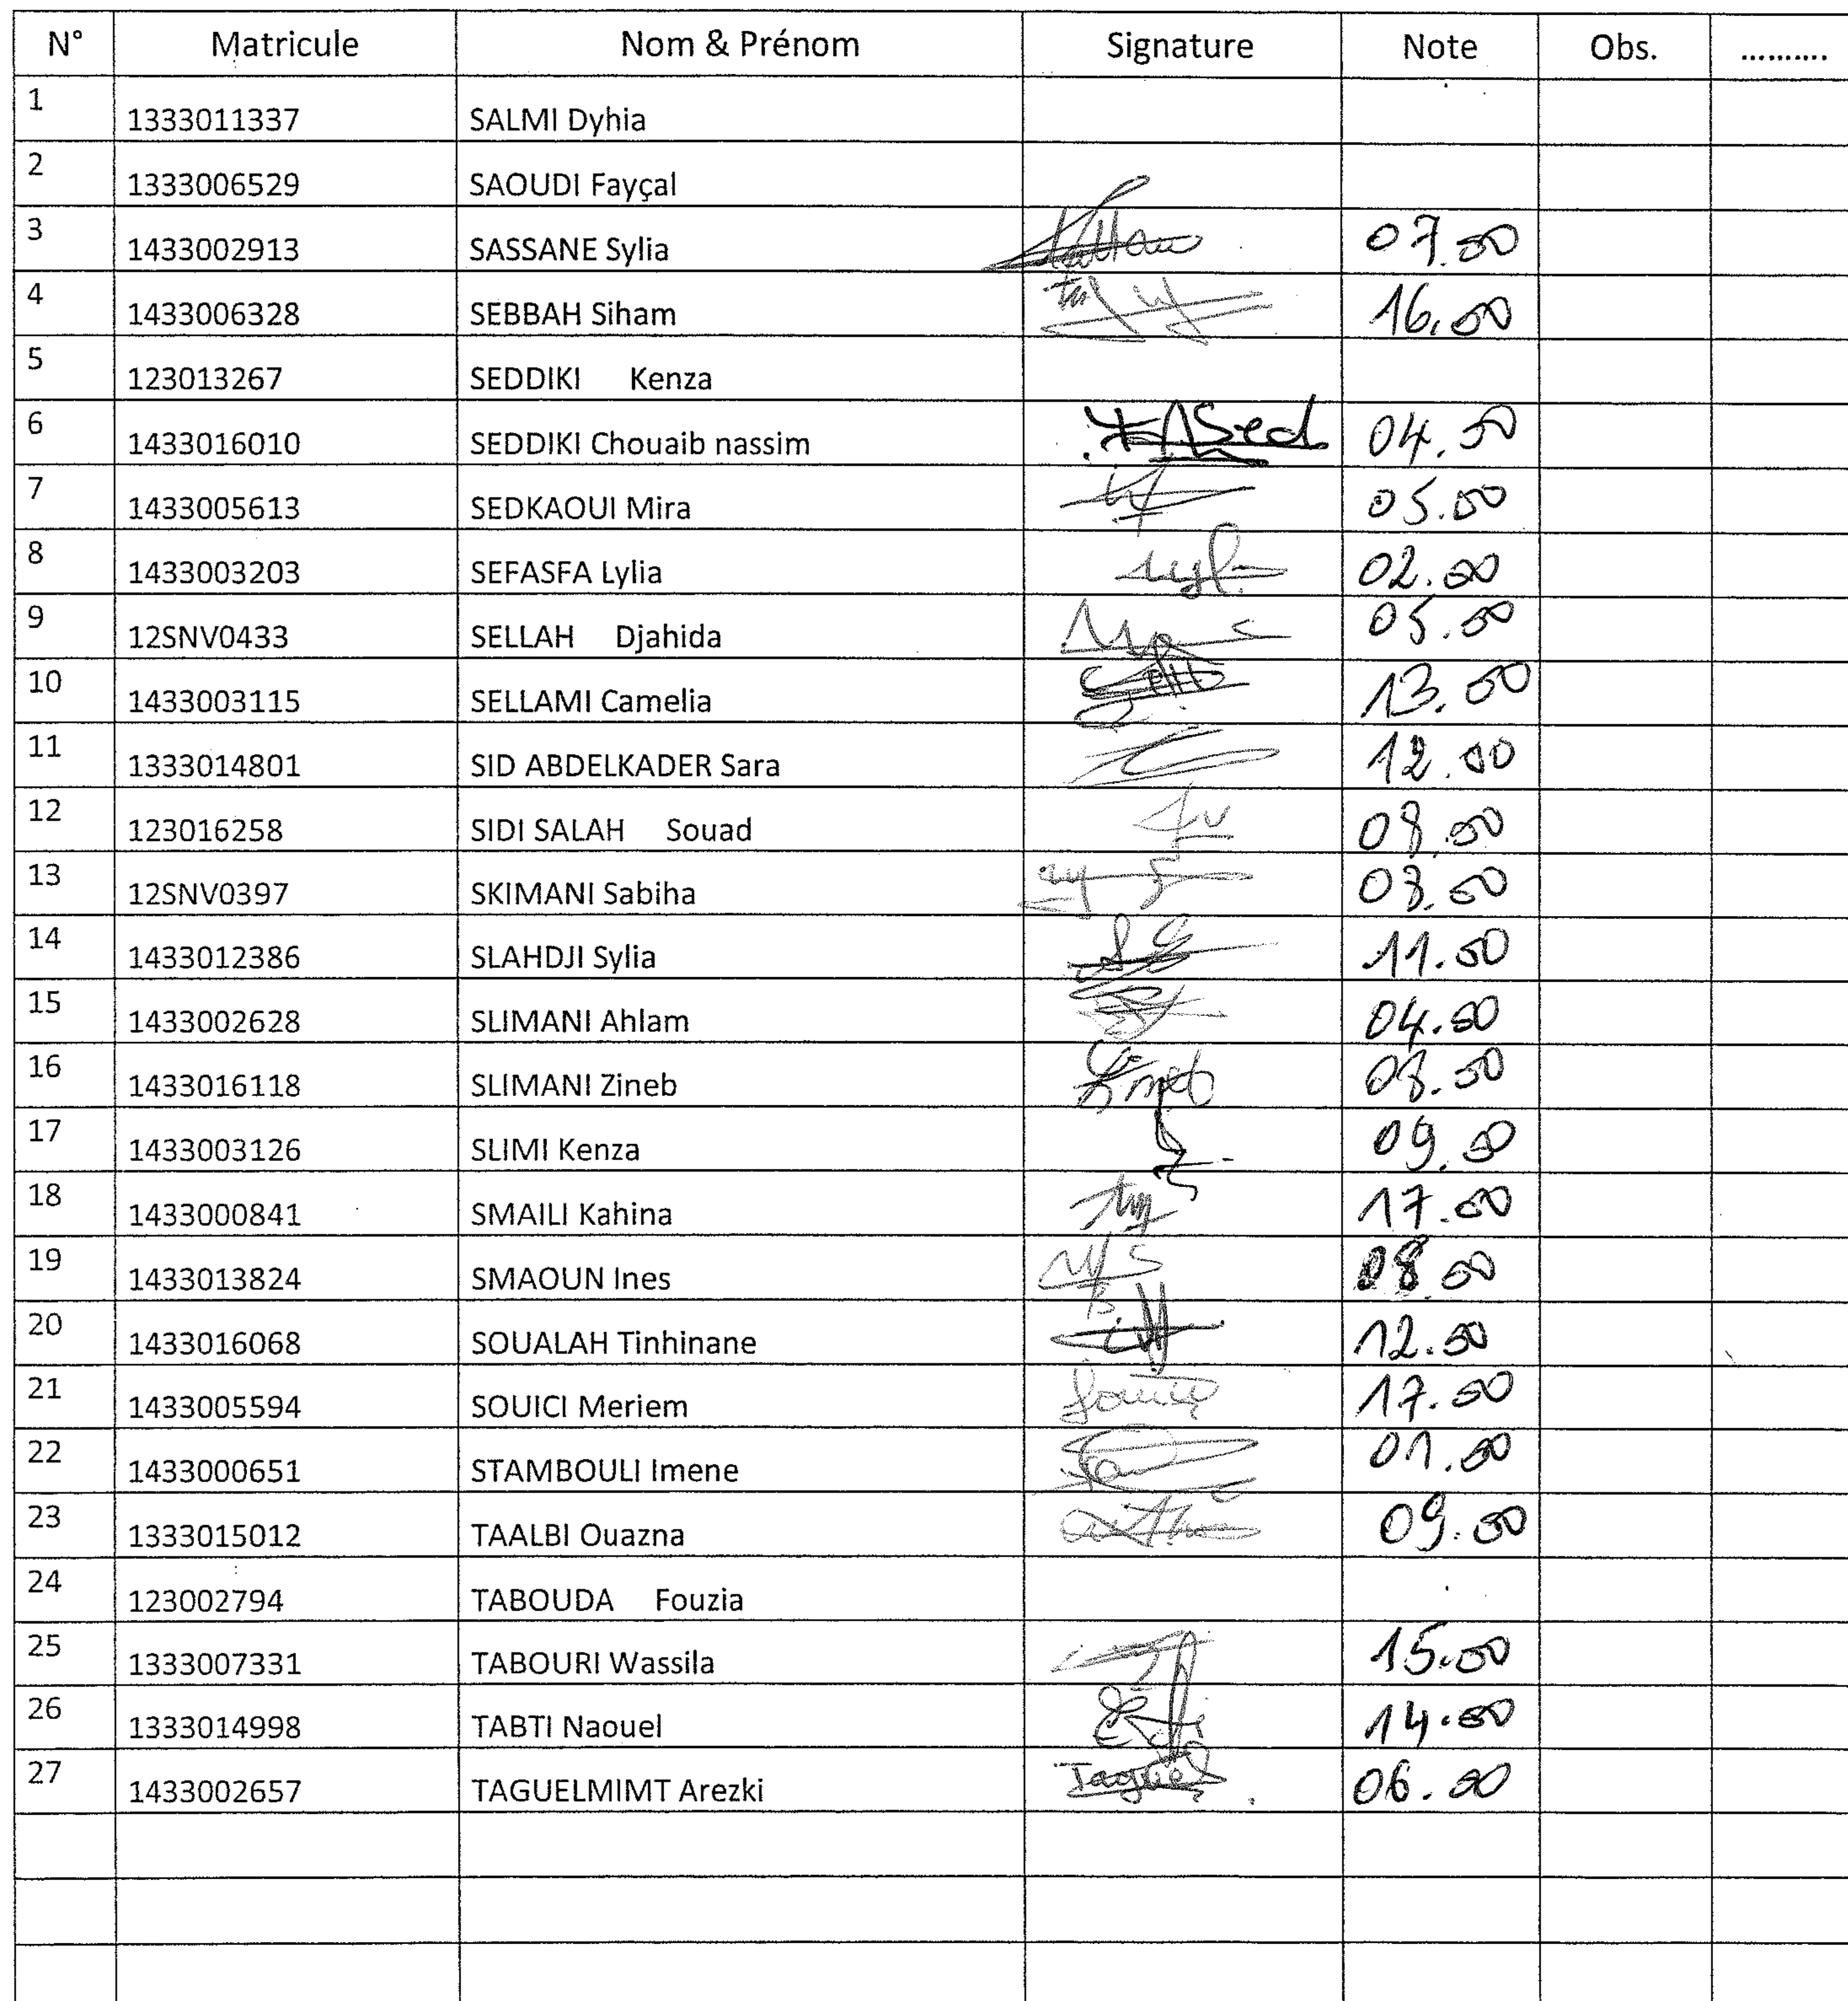 N° Matricule Nom & Prénom Signature Note Obs. ..........
1 1333011337 SALMI Dyhia
2 1333006529 SAOUDI Fayçal
3 1433002913 SASSANE Sylia 07.00
4 1433006328 SEBBAH Siham 16.00
5 123013267 SEDDIKI Kenza
6 1433016010 SEDDIKI Chouaib nassim Sed 04.50
7 1433005613 SEDKAOUI Mira 05.00
8 1433003203 SEFASFA Lylia 02.00
9 12SNV0433 SELLAH Djahida 05.00
10 1433003115 SELLAMI Camelia 13.00
11 1333014801 SID ABDELKADER Sara 12.00
12 123016258 SIDI SALAH Souad
13 12SNV0397 SKIMANI Sabiha
14 1433012386 SLAHDJI Sylia 11.50
15 1433002628 SLIMANI Ahlam 04.50
16 1433016118 SLIMANI Zineb 08.50
17 1433003126 SLIMI Kenza
18 1433000841 SMAILI Kahina 17.00
19 1433013824 SMAOUN Ines 08.50
20 1433016068 SOUALAH Tinhinane 12.50
21 1433005594 SOUICI Meriem 17.50
22 1433000651 STAMBOULI Imene
23 1333015012 TAALBI Ouazna 09.50
24 123002794 TABOUDA Fouzia
25 1333007331 TABOURI Wassila 15.00
26 1333014998 TABTI Naouel 14.00
27 1433002657 TAGUELMIMT Arezki 06.00